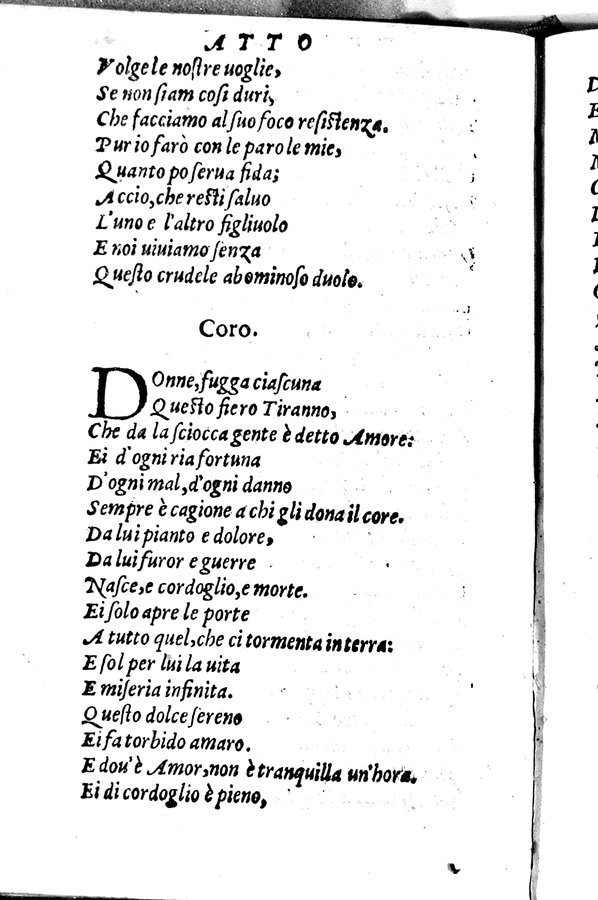 ATTO
Volge le noſtre uoglie,
Se non ſiam coſi duri,
Che facciamo al ſuo foco reſiſtenza.
Pur io farò con le parole mie,
Quanto po ſerua fida;
Accio, che reſti ſaluo
L'uno e l'altro figliuolo
E noi uiuiamo ſenza
Queſto crudele abominoſo duolo.
Coro.
Donne, fugga ciaſcuna
Queſto fiero Tiranno,
Che da la ſciocca gente è detto Amore:
Ei d'ogni ria fortuna
D'ogni mal, d'ogni danno
Sempre è cagione a chi gli dona il core.
Da lui pianto e dolore,
Da lui furor e guerre
Naſce, e cordoglio, e morte.
Ei ſolo apre le porte
A tutto quel, che ci tormenta in terra:
E ſol per lui la uita
E miſeria infinita.
Queſto dolce ſereno
Ei fa torbido amaro.
E dou'è Amor, non è tranquilla un'hora.
Ei di cordoglio è pieno,